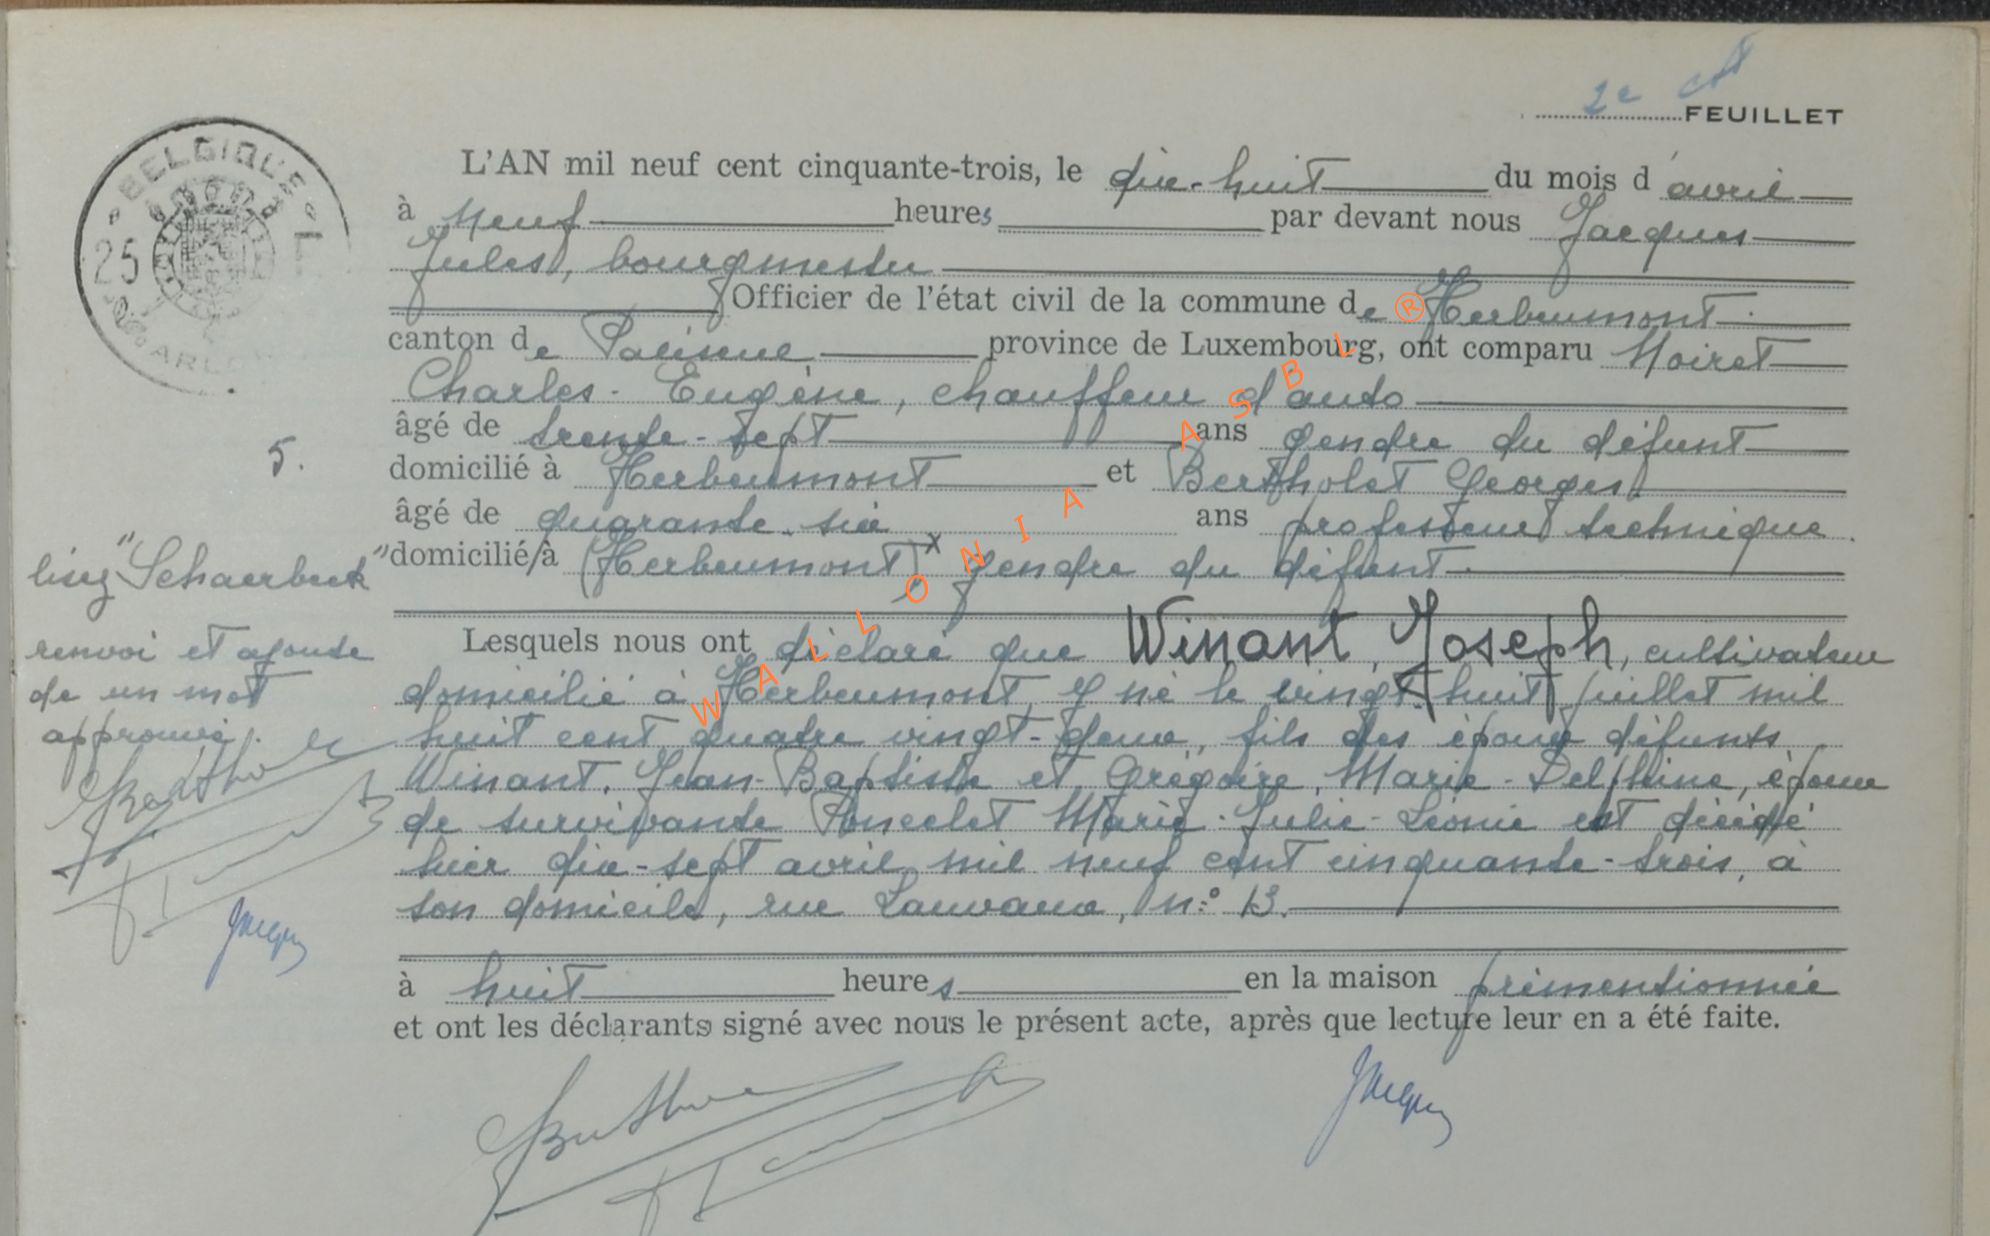 2e
FEUILLET
BELGIQUE
25
ARLON
L'AN mil neuf cent cinquante-trois, le dix-huit du mois d'avril
à neuf heures par devant nous Jacques
Jules, bourgmestre
Officier de l'état civil de la commune de Herbeumont
canton de Paliseul province de Luxembourg, ont comparu Noiret
Charles-Eugène, chauffeur d'auto
âgé de trente-sept ans gendre du défunt
5.
domicilié à Herbeumont et Bertholet Georges
âgé de quarante-six ans professeur technique
domicilié à (Herbeumont) x gendre du défunt
lisez "Schaerbeek"
renvoi et ajoute
de un mot
approuvé.
Lesquels nous ont déclaré que Winant, Joseph, cultivateur
domicilié à Herbeumont, y né le vingt-huit juillet mil
huit cent quatre vingt-deux, fils des époux défunts
Winant, Jean-Baptiste et Grégoire, Marie-Delphine, époux
de survivante Poncelet Marie-Julie-Léonie est décédé
hier dix-sept avril mil neuf cent cinquante-trois, à
son domicile, rue Lauvaux, n:° 13.
à huit heures en la maison prémentionnée
et ont les déclarants signé avec nous le présent acte, après que lecture leur en a été faite.
Jacques
Jacques
WALLONIA ASBL ®